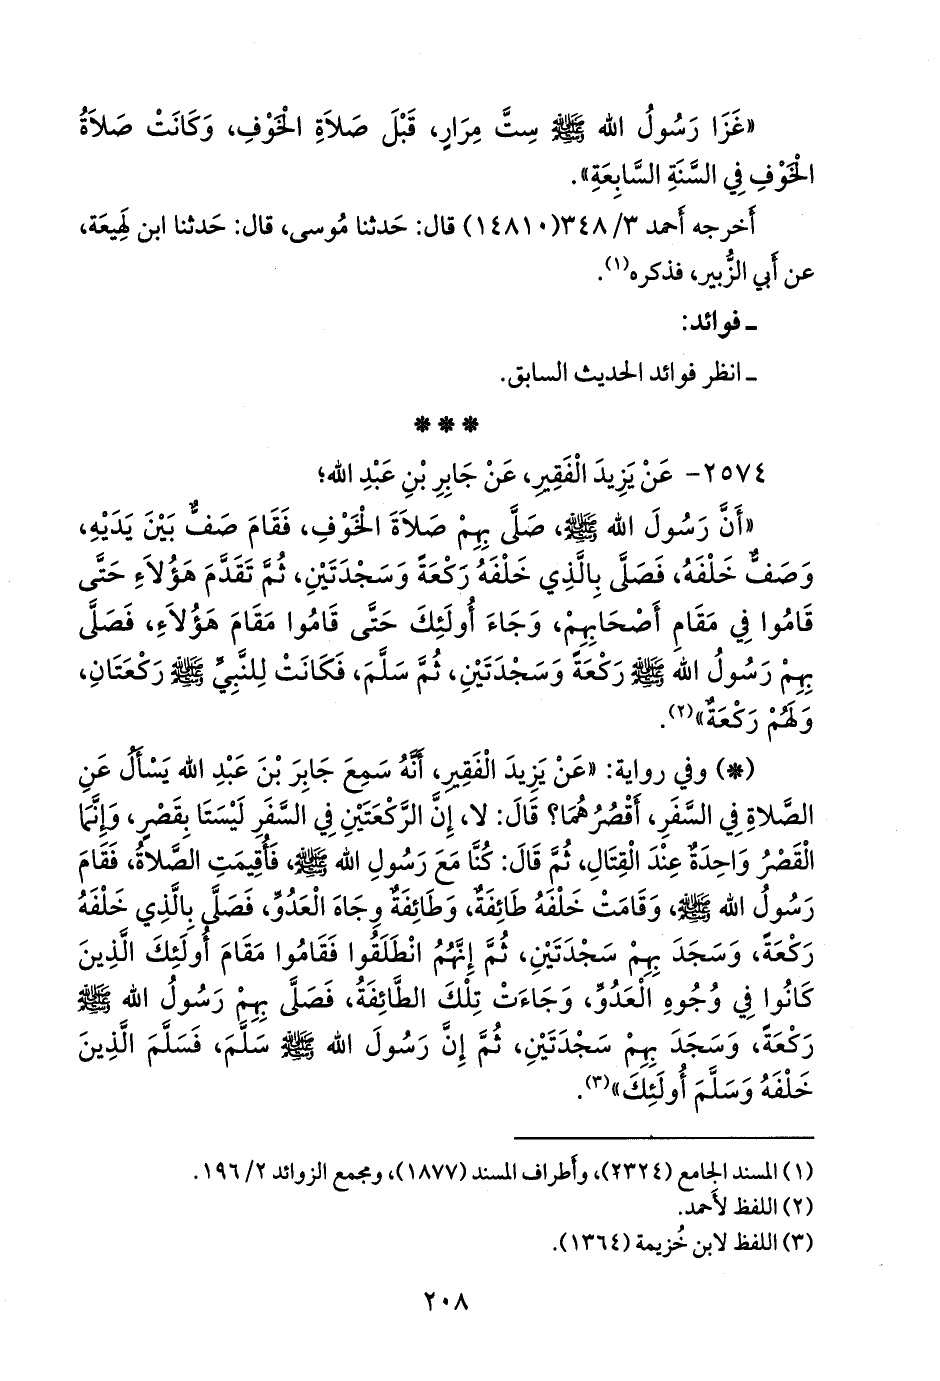 «غَزَا رَسُولُ الله ﷺ سِتَّ مِرَارٍ، قَبْلَ صَلاَةِ الْخَوْفِ، وَكَانَتْ صَلاَةُ
الْخَوْفِ فِي السَّنَةِ السَّابِعَةِ».
أَخرجه أَحمد ٣/ ٣٤٨(١٤٨١٠) قال: حَدثنا مُوسى، قال: حَدثنا ابن لَهِيعَة،
عن أَبي الزُّبير، فذكره(١).
ـ فوائد:
ـ انظر فوائد الحديث السابق.
***
٢٥٧٤- عَنْ يَزِيدَ الْفَقِيرِ، عَنْ جَابِرِ بْنِ عَبْدِ الله؛
«أَنَّ رَسُولَ الله ﷺ، صَلَّى بِهِمْ صَلاَةَ الْخَوْفِ، فَقَامَ صَفٌّ بَيْنَ يَدَيْهِ،
وَصَفٌّ خَلْفَهُ، فَصَلَّى بِالَّذِي خَلْفَهُ رَكْعَةً وَسَجْدَتَيْنِ، ثُمَّ تَقَدَّمَ هَؤُلاَءِ حَتَّى
قَامُوا فِي مَقَامِ أَصْحَابِهِمْ، وَجَاءَ أُولَئِكَ حَتَّى قَامُوا مَقَامَ هَؤُلاَءِ، فَصَلَّى
بِهِمْ رَسُولُ الله ﷺ رَكْعَةً وَسَجْدَتَيْنِ، ثُمَّ سَلَّمَ، فَكَانَتْ لِلنَّبِيِّ ﷺ رَكْعَتَانِ،
وَلَهُمْ رَكْعَةٌ»(٢).
(*) وفي رواية: «عَنْ يَزِيدَ الْفَقِيرِ، أَنَّهُ سَمِعَ جَابِرَ بْنَ عَبْدِ الله يَسْأَلُ عَنِ
الصَّلاَةِ فِي السَّفَرِ، أَقْصُرُهُمَا؟ قَالَ: لا، إِنَّ الرَّكْعَتَيْنِ فِي السَّفَرِ لَيْسَتَا بِقَصْرٍ، وَإِنَّمَا
الْقَصْرُ وَاحِدَةٌ عِنْدَ الْقِتَالِ، ثُمَّ قَالَ: كُنَّا مَعَ رَسُولِ الله ﷺ، فَأُقِيمَتِ الصَّلاَةُ، فَقَامَ
رَسُولُ الله ﷺ، وَقَامَتْ خَلْفَهُ طَائِفَةٌ، وَطَائِفَةٌ وِجَاهَ الْعَدُوِّ، فَصَلَّى بِالَّذِي خَلْفَهُ
رَكْعَةً، وَسَجَدَ بِهِمْ سَجْدَتَيْنِ، ثُمَّ إِنَّهُمُ انْطَلَقُوا فَقَامُوا مَقَامَ أُولَئِكَ الَّذِينَ
كَانُوا فِي وُجُوهِ الْعَدُوِّ، وَجَاءَتْ تِلْكَ الطَّائِفَةُ، فَصَلَّى بِهِمْ رَسُولُ الله ﷺ
رَكْعَةً، وَسَجَدَ بِهِمْ سَجْدَتَيْنِ، ثُمَّ إِنَّ رَسُولَ الله ﷺ سَلَّمَ، فَسَلَّمَ الَّذِينَ
خَلْفَهُ وَسَلَّمَ أُولَئِكَ»(٣).
(١) المسند الجامع (٢٣٢٤)، وأَطراف المسند (١٨٧٧)، ومجمع الزوائد ٢/ ١٩٦.
(٢) اللفظ لأَحمد.
(٣) اللفظ لابن خُزيمة (١٣٦٤).
٢٠٨